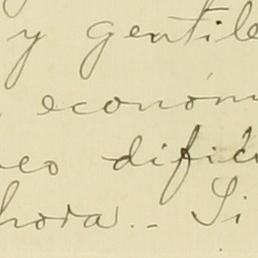 y gentile
económ
eo dific
hora.- Si